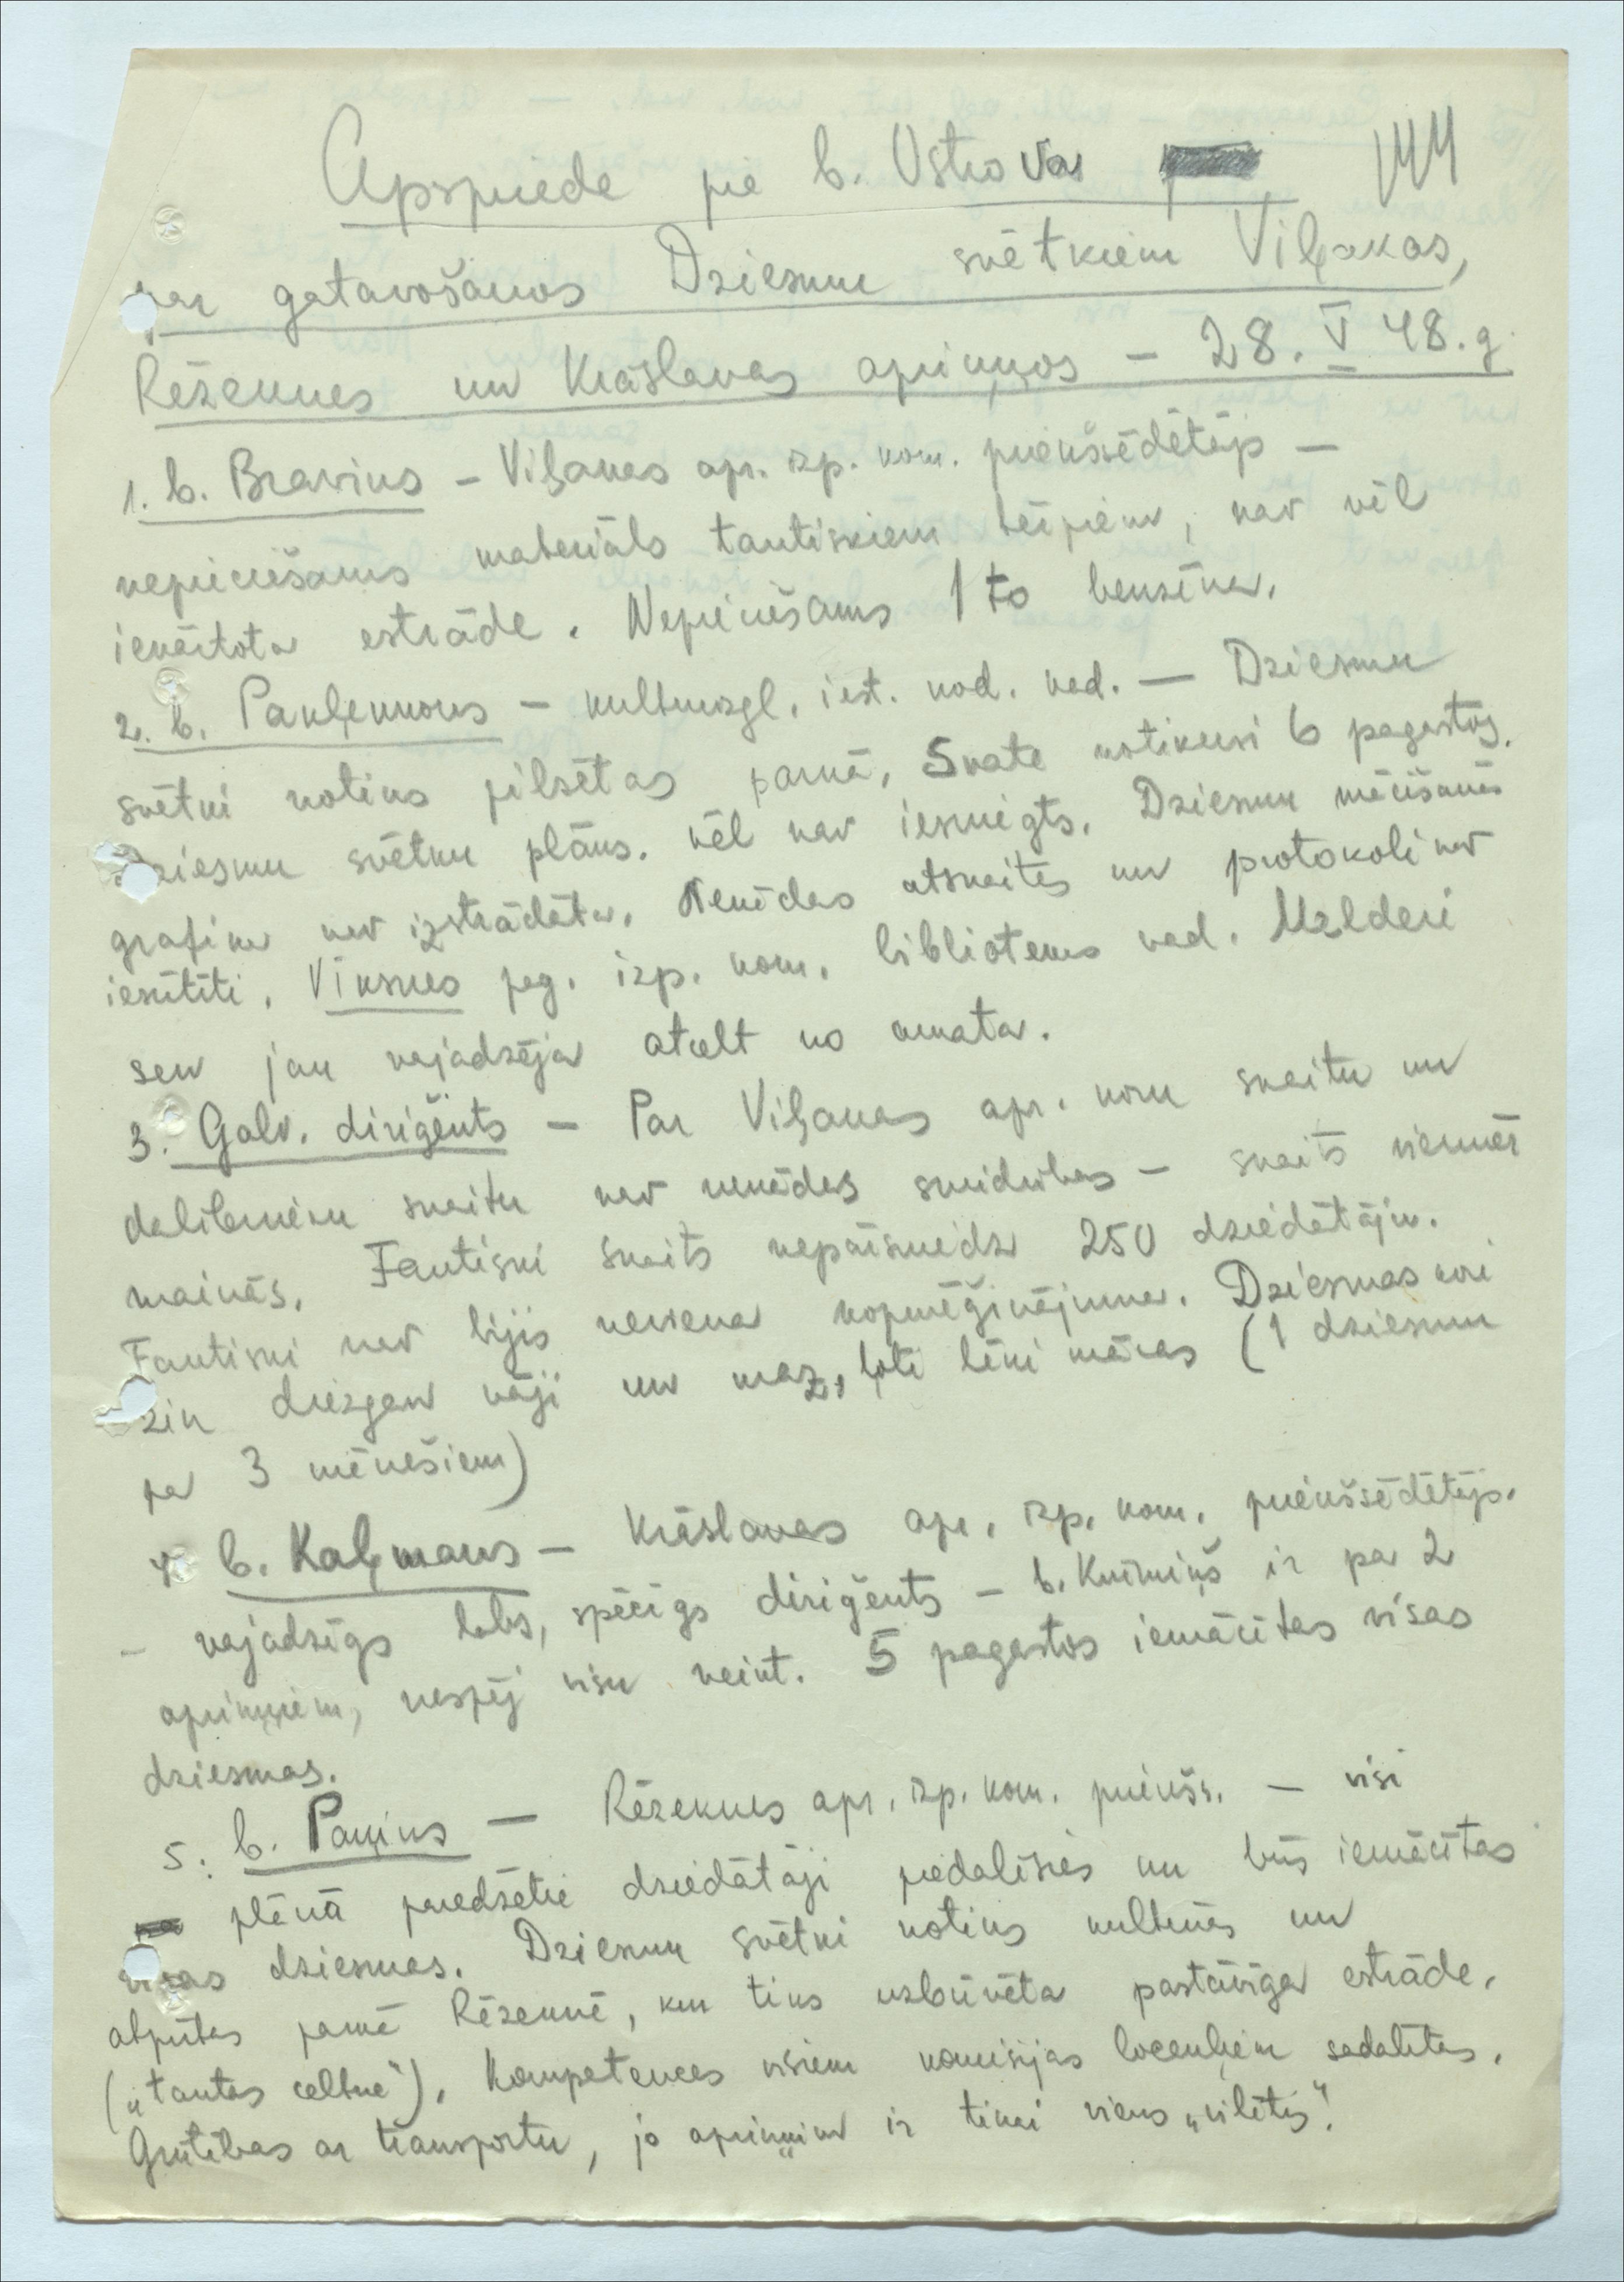 Apspriede pie b. Ostrovas 144
par gatavošanos Dziesmu svētkiem Viļakas,
Rēzeknes un Krāslavas apriņķos – 28. V 48. g.
1. b. Bravins – Viļakas apr. izp. kom. priekšsēdētājs –
nepieciešams materiāls tautiskiem tērpiem, nav vēl
iekārtota estrāde. Nepieciešams 1 to benzīna.
2. b. Pavļenkovs – kultūrizgl. iest. nod. vad. — Dziesmu
svētki notiks pilsētas parkā, Skate notikusi 6 pagastos.
Dziesmu svētku plāns. vēl nav iesniegts. Dziesmu mācīšanās
grafika nav izstrādāta. Nekādas atskaites un protokoli nav
iesūtīti. Vīksnes pag. izp. kom. bibliotekas vad. Melderi
sen jau vajadzēja atcelt no amata.
3. Galv. diriģents – Par Viļakas apr. koru skaitu un
dalibnieku skaitu nav nekādas skaidrības – skaits vienmēr
mainās. Faktiski skaits nepārsniedz 250 dziedātāju.
Faktiski nav bijis neviena kopmēģinājuma. Dziesmas kori
zin diezgan vāji un maz, ļoti lēni mācas (1 dziesmu
pa 3 mēnešiem)
4. b. Kaļmans – Krāslavas apr. izp. kom. priekšsēdētājs.
– vajadzīgs labs, spēcīgs diriģents – b. Krūmiņš ir pa 2
apriņķiem, nespēj visu veikt. 5 pagastos iemācītas visas
dziesmas.
5. b. Paņins — Rēzeknes apr. izp. kom. priekšs. – visi
plānā paredzētie dziedātāji piedalīsies un būs iemācītas
visas dziesmas. Dziesmu svētki notiks kultūras un
atpūtas parkā Rēzeknē, kur tiks uzbūvēta pastāvīga estrāde.
(„tautas celtne"). Kompetences visiem komisijas locekļiem sadalītas.
Grūtības ar transportu, jo apriņķim ir tikai viens „vilītis".